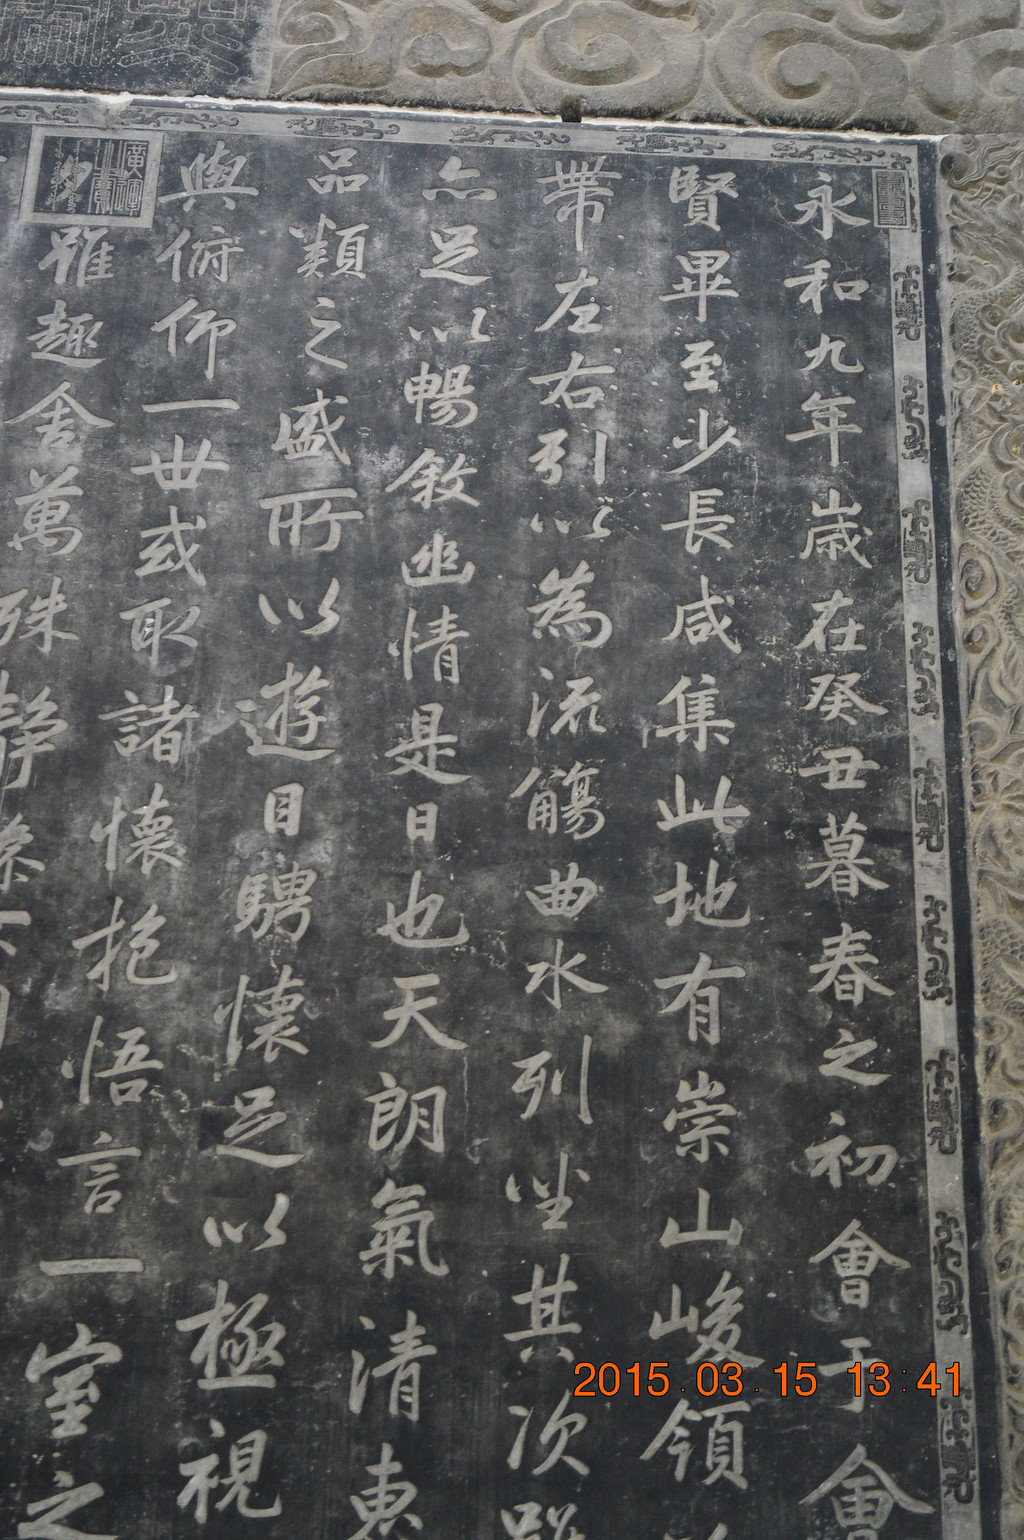 永和九年歲在癸丑暮春之初會于會
賢畢至少長咸集此地有崇山峻領
帶左右引以為流觴曲水列坐其次
亦足以暢敘幽情是日也天朗氣清惠
品類之盛所以遊目騁懷足以極視
與俯仰一世或取諸懷抱悟言一室之
雖趣舍萬殊靜
2015.03.15 13:41